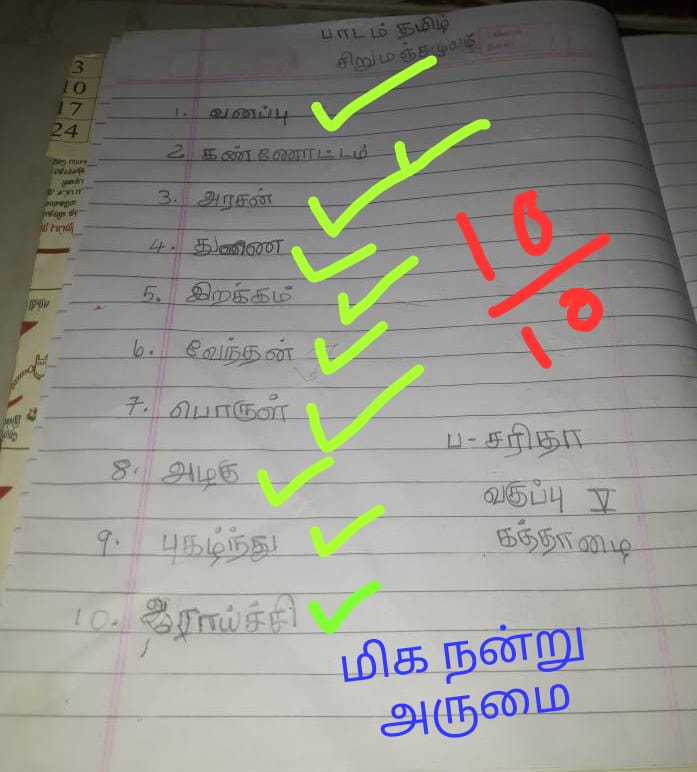 பாடம் தமிழ்
சிறுபஞ்சமூலம்
3
10
17
24
1. வனப்பு
2 கண்ணோட்டம்
3. அரசன்
4. துணை
5. இறக்கம்
6. வேந்தன்
7. பொருள்
8. அழகு
9. புகழ்ந்து
10. ஆராய்ச்சி
10
10
ப - சரிதா
வகுப்பு V
கத்தாழை
மிக நன்று
அருமை